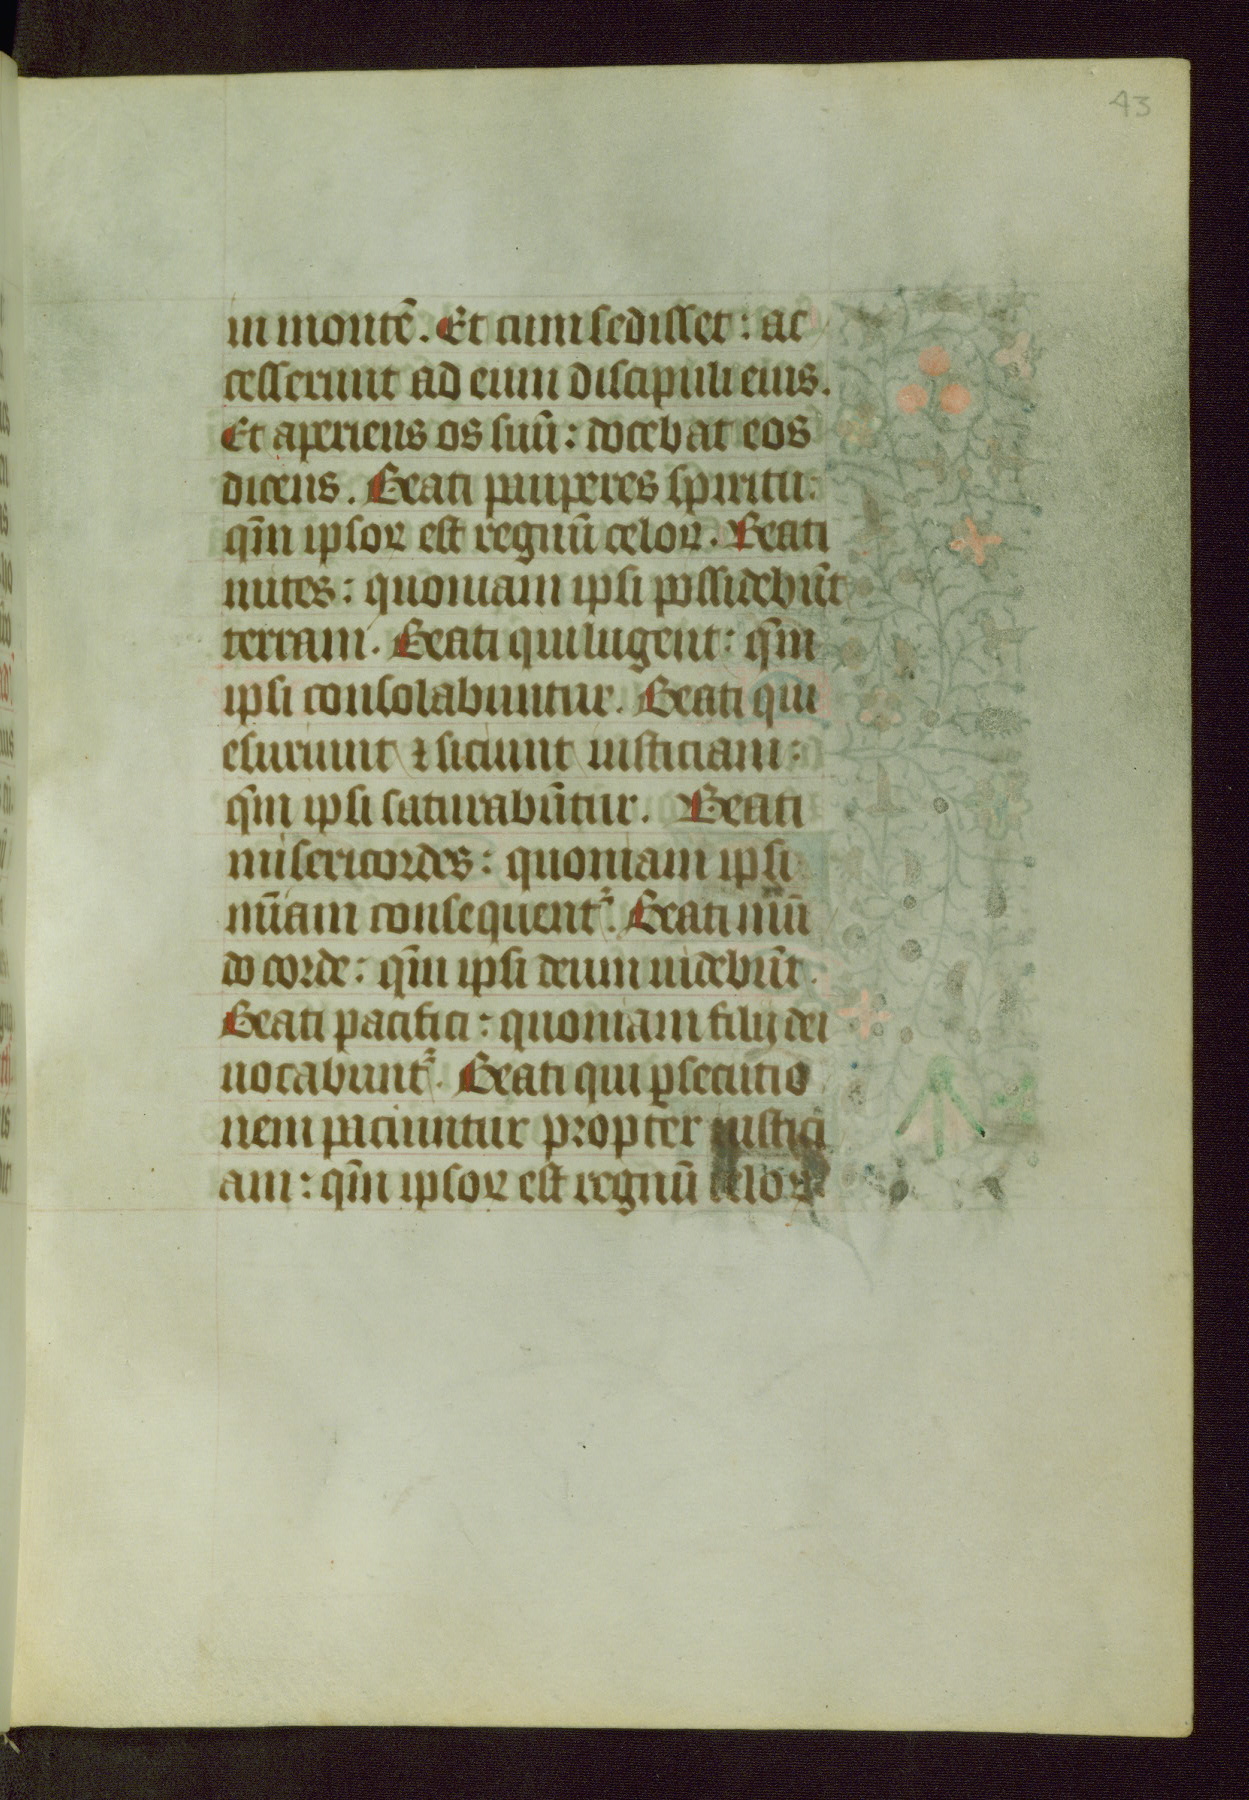 43
in montē. Et cum sedisset: ac
cesserunt ad eum discipuli eius.
Et aperiens os suū: docebat eos
dicens. Beati pauperes spiritu:
qm̄ ipsoꝝ est regnū celoꝝ. Beati
mites: quoniam ipsi possidebūt
terram. Beati qui lugent: qm̄
ipsi consolabuntur. Beati qui
esuriunt ⁊ siciunt iusticiam:
qm̄ ipsi saturabūtur. Beati
misericordes: quoniam ipsi
mīam consequent᷑. Beati mū
do corde: qm̄ ipsi deum uidebūt.
Beati pacifici: quoniam filij dei
uocabunt᷑. Beati qui ꝑsecutio
nem paciuntur propter iustici
am: qm̄ ipsoꝝ est regnū celoꝝ